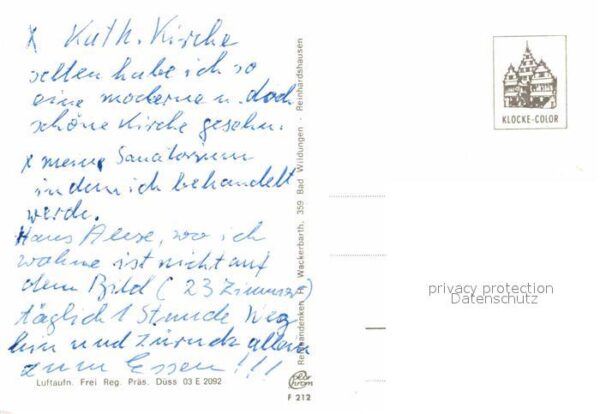 x Kath. Kirche
selten habe ich so
eine moderne u. doch
schöne Kirche gesehn.
x mein Sanatorium
in dem ich behandelt
werde.
Haus, wo ich
wohne ist nicht auf
dem Bild (23 Zimmer)
täglich 1 Stunde Weg
hin und zurück allein
zum Essen!!!
Luftaufn. Frei Reg. Präs. Düss 03 E 2092
Reformandenken H. Wackerbarth, 359 Bad Wildungen - Reinhardshausen
F 212
KLOCKE-COLOR
privacy protection
Datenschutz